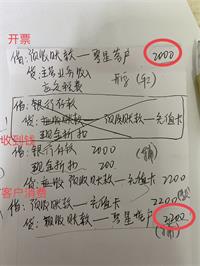 开票
借: 预收账款—零星客户 2000
贷: 主营业务收入
应交税费
借: 银行存款
贷: 预收账款—充值卡
现金折扣
收到钱
借: 银行存款 2000
现金折扣 200
贷: 预收账款—充值卡 2200
客户消费
借: 预收账款—充值卡 2200
贷: 预收账款—零星客户 2200